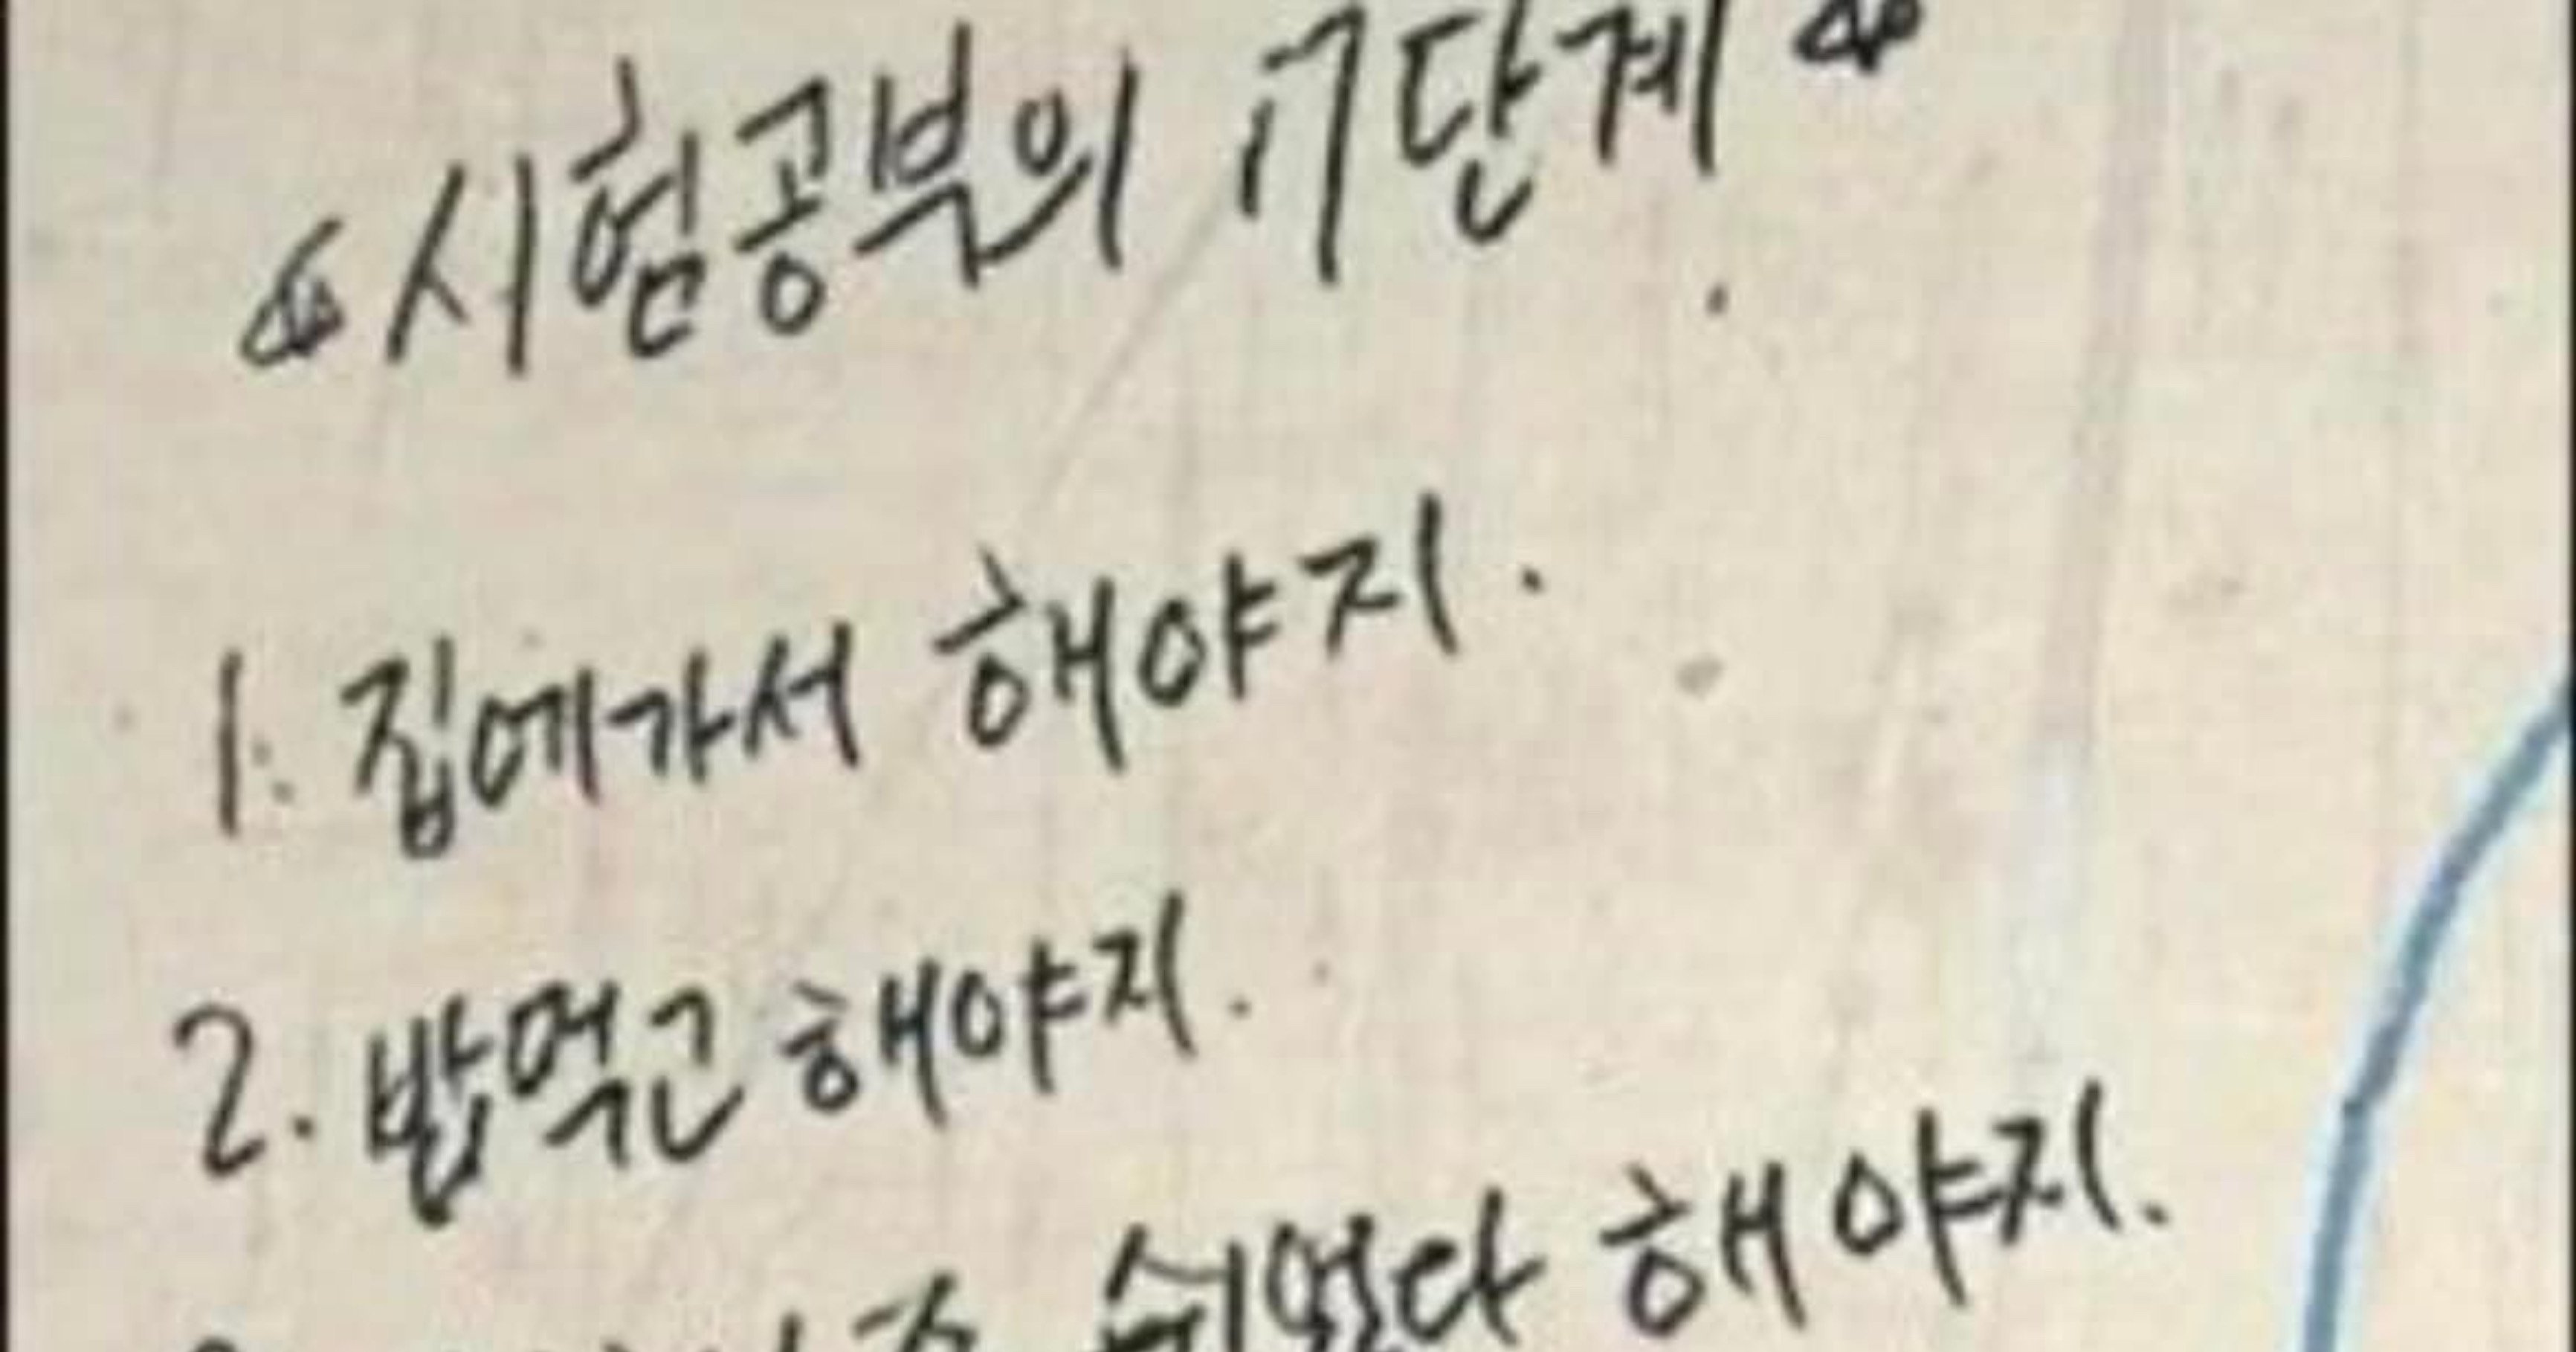 시험공부의 7단계
1. 집에가서 해야지.
2. 밥먹고 해야지.
쉬었다 해야지.